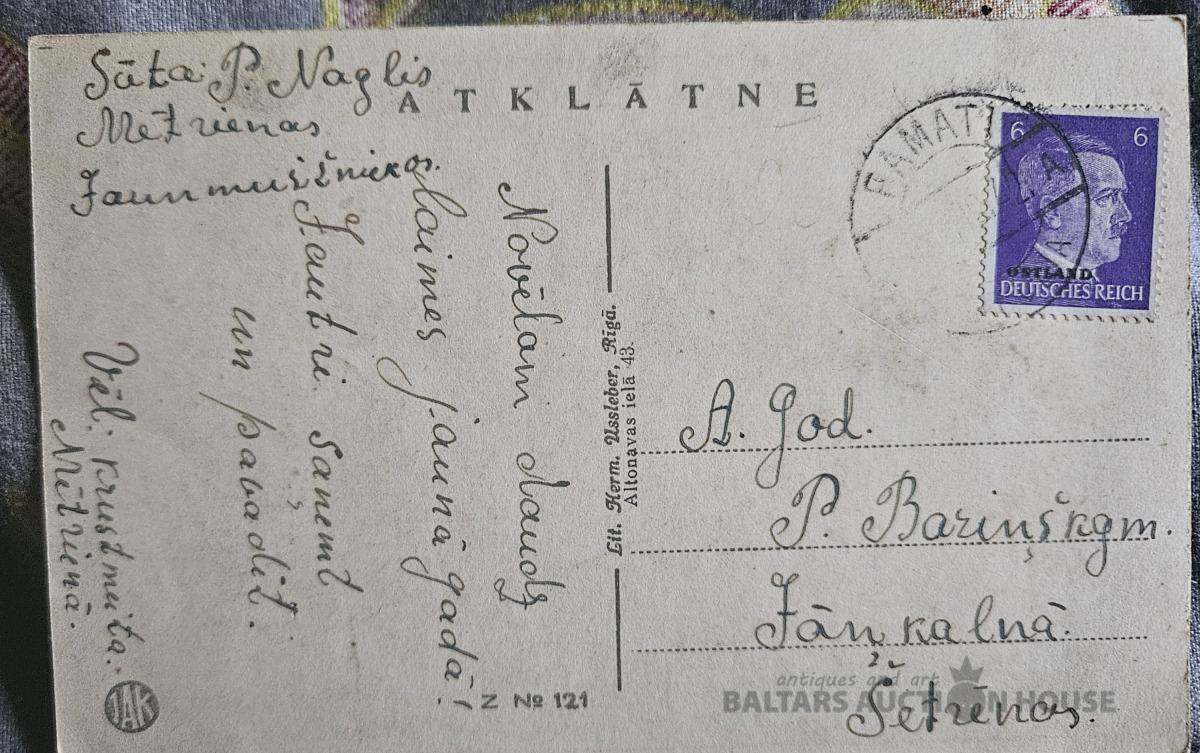 Sūta: P. Naglis
Mētrienas
Jaunmuižniekos.
ATKLĀTNE
Novēlam daudz
laimes jaunā gadā!
Jautri saņemt
un pavadīt.
Vēl. krustmeita.
Mētrienā.
Lit. Herm. Ussleber, Rīgā.
Altonavas ielā 43.
6 6
OSTLAND
DEUTSCHES REICH
A. God.
P. Bariņš kgm.
Jānkalnā.
Šetrēnos.
Z № 121
JAK
antiques and art
BALTARS AUCTION HOUSE